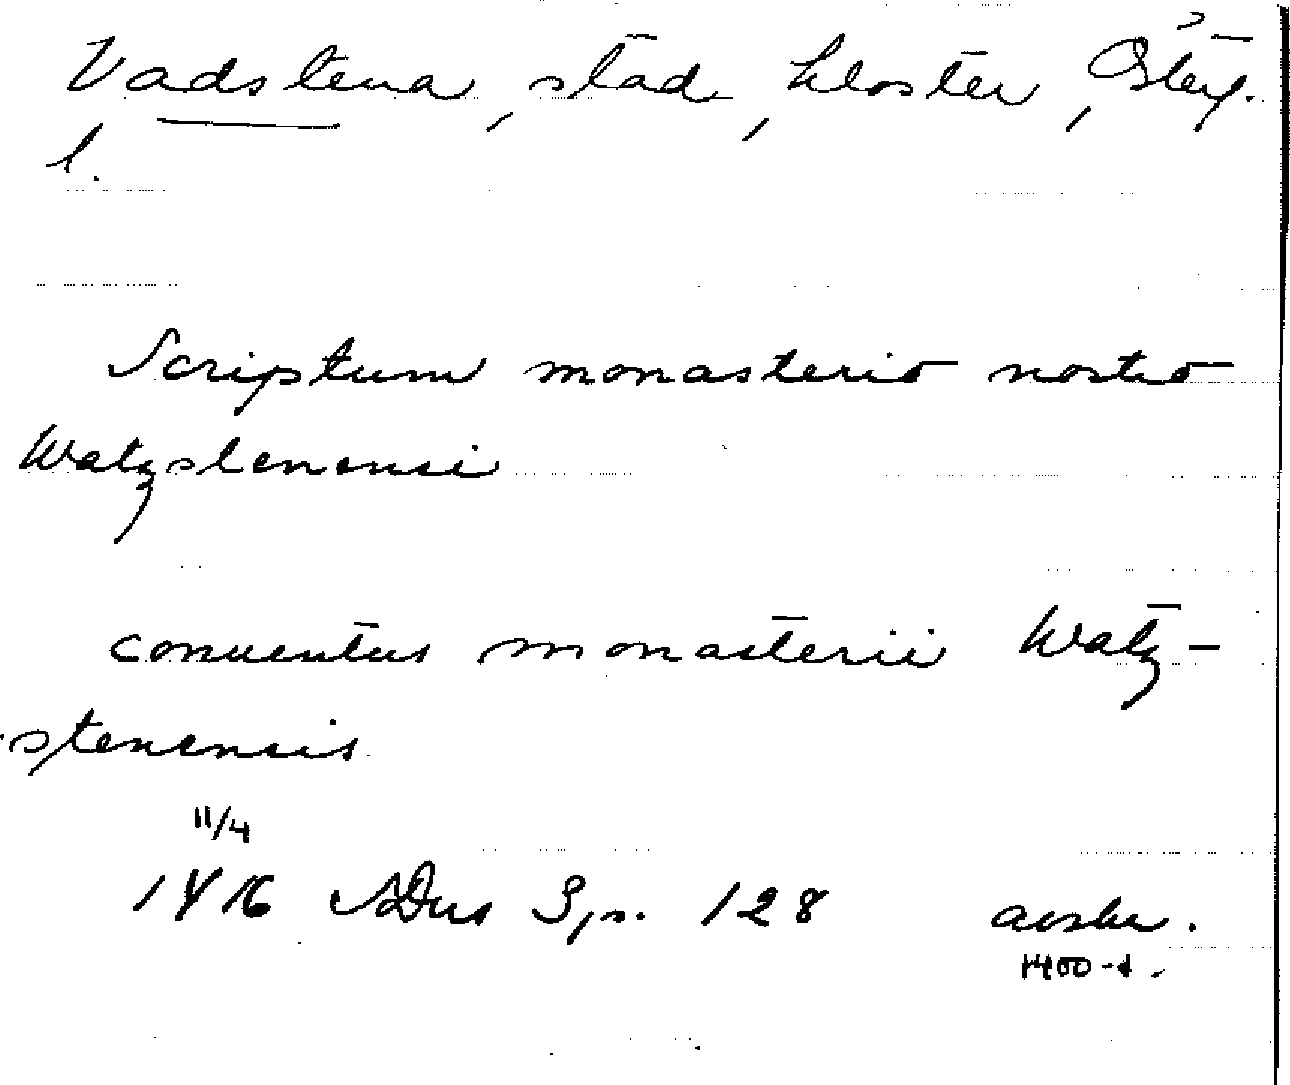 Vadstena, stad, kloster, Östergl.
l.
Scriptum monasterio nostro
Watzstenensi
conuentus monasterii Watz-
stenensis
11/4
1416 SDns 3, s. 128 avskr.
1400-t.